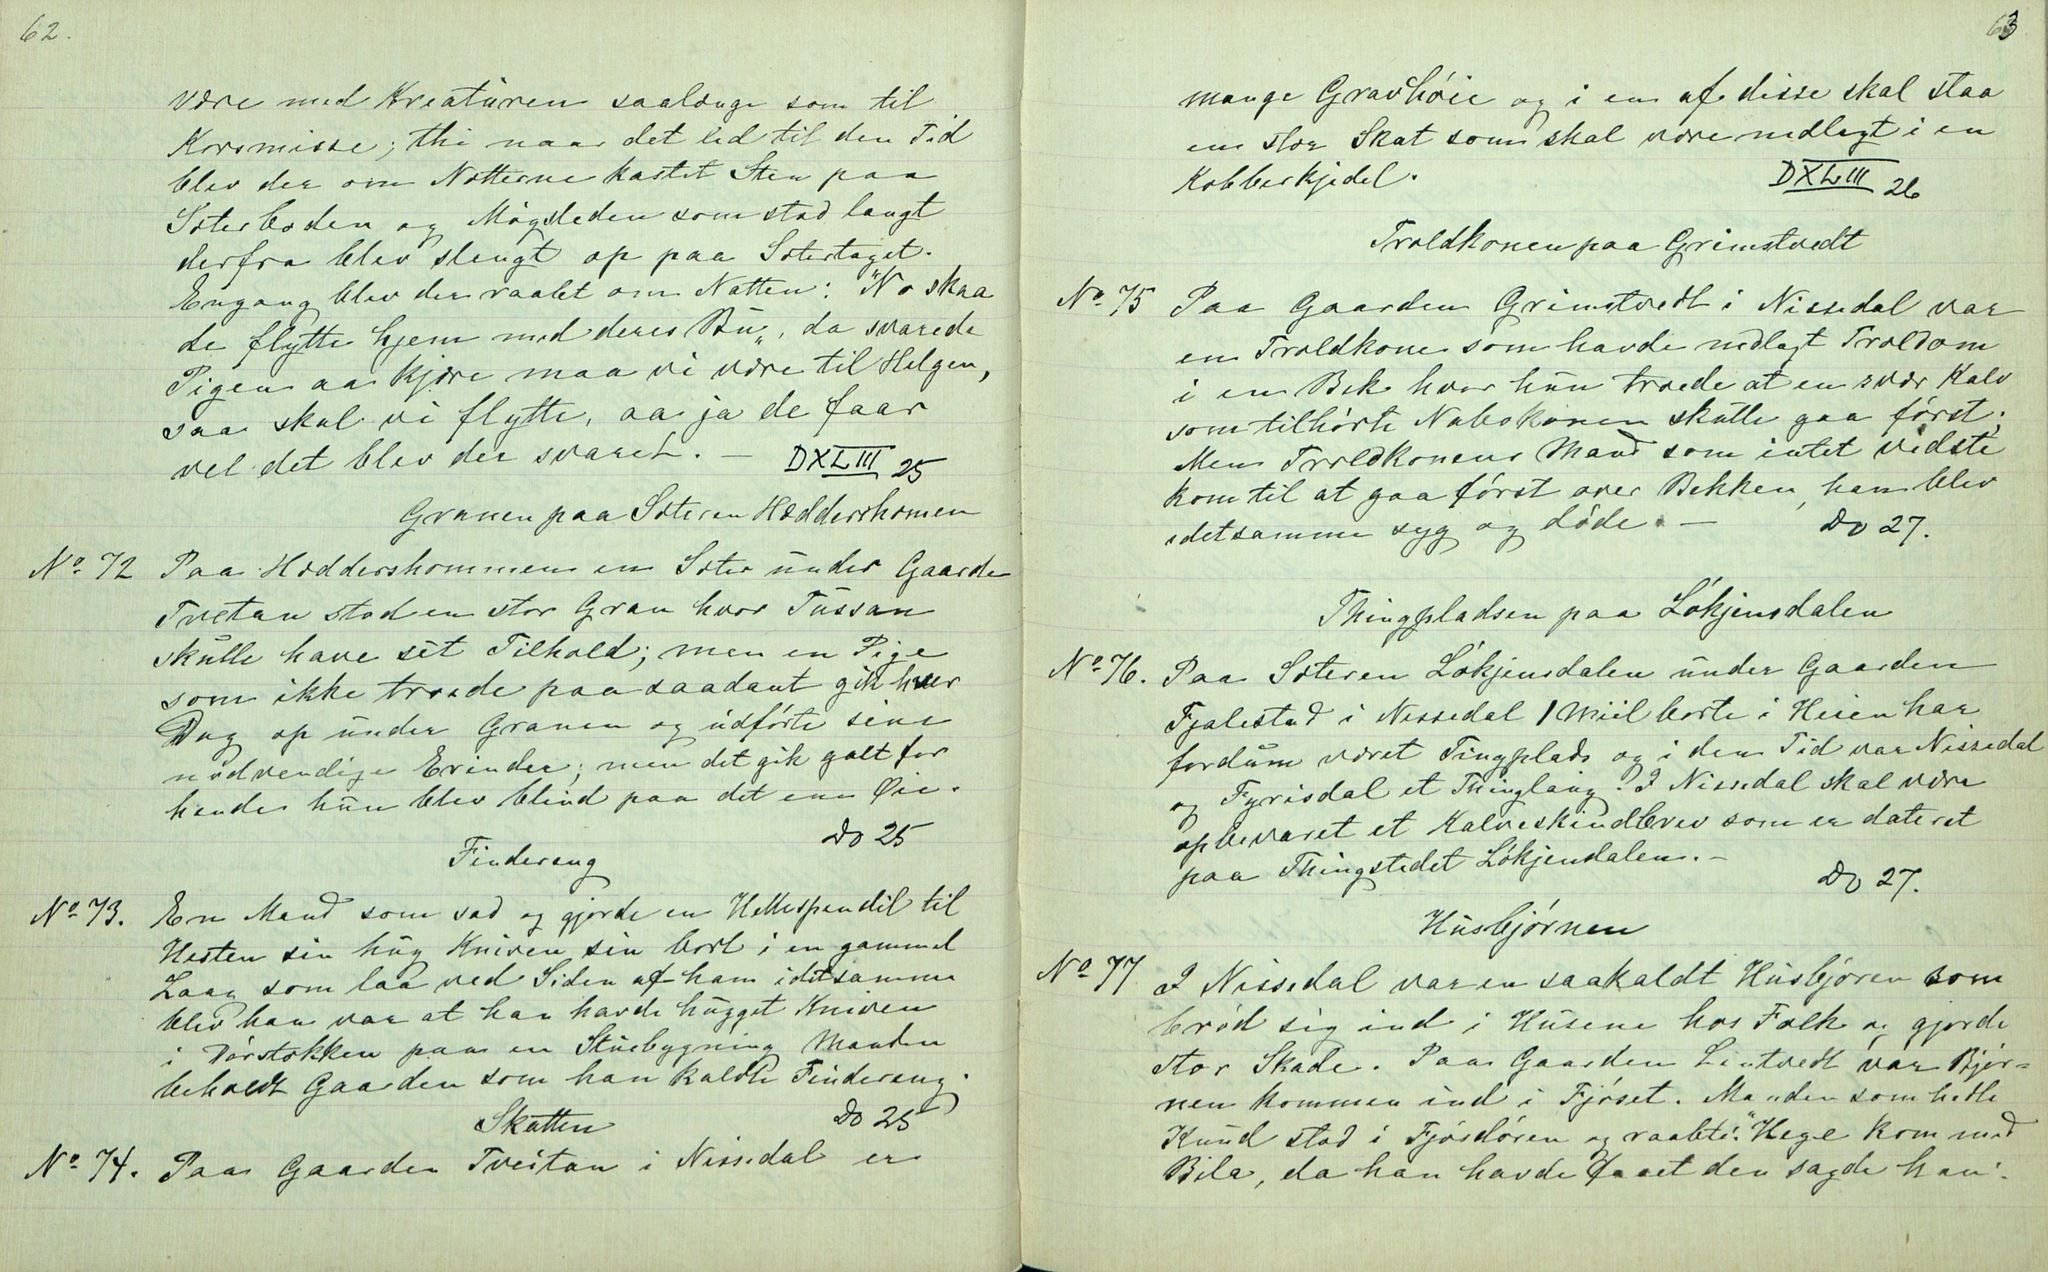 62.
være med Kreaturen saalænge som til
Korsmisse; thi naar det led til den Tid
blev der om Nætterne kastet Sten paa
Sæterboden og Møgsleden som stod langt
derfra blev slengt op paa Sætertaget.
Engang blev der raabt om Natten: "No skaa
de flytte hjem med deres Bu", da svarede
Pigen aa kjære maa vi være til Helgen,
saa skal vi flytte, aa ja de faar
vel det blev der svaret. — DXLIII 25
Granen paa Sæteren Hæddershomen
No 72 Paa Hæddershommen en Sæter under Gaarde
Tveitan stod en stor Gran hvor Tussan
skulle have sit Tilhold; men en Pige
som ikke troede paa saadant gik hver
Dag op under Granen og udførte sine
nødvendige Erinder; men det gik galt for
hende hun blev blind paa det ene Øie.
Do 25
Findereng
No 73. En Mand som sad og gjorde en Hettespendil til
Hesten sin hug Kniven sin bort i en gammel
Laag som laa ved Siden af ham idetsamme
blev han var at han havde hugget Kniven
i Dørstokken paa en Stuebygning Manden
beholdt Gaarden som han kaldte Findereng.
Skatten Do 25
No 74. Paa Gaarden Tveitan i Nissedal er
63
mange Gravhøie og i en af disse skal staa
en stor Skat som skal være nedlagt i en
Kobberkjedel. DXLIII 26
Troldkonen paa Grimstvedt
No 75 Paa Gaarden Grimstvedt i Nissedal var
en Troldkone som havde nedlagt Troldom
i en Bek hvor hun troede at en svær Kalv
som tilhørte Nabokonen skulle gaa først.
Men Troldkonens Mand som intet vidste
kom til at gaa først over Bekken, han blev
idetsamme syg og døde. — Do 27.
Thingpladsen paa Løkjensdalen
No 76. Paa Sæteren Løkjensdalen under Gaarden
Fjalestad i Nissedal 1 Miil borte i Heien har
fordum været Tingplads og i den Tid var Nissedal
og Fyrisdal et Thinglaug. I Nissedal skal være
opbevaret et Kalveskindbrev som er dateret
paa Thingstedet Løkjendalen. —
Do 27.
Husbjørnen
No 77 I Nissedal var en saakaldt Husbjøren som
brød sig ind i Husene hos Folk og gjorde
stor Skade. Paa Gaarden Lintvedt var Bjør=
nen kommen ind i Fjøset. Manden som hedte
Knud stod i Fjøsdøren og raabte: "Hege kom med
Bila, da han havde faaet den sagde han: